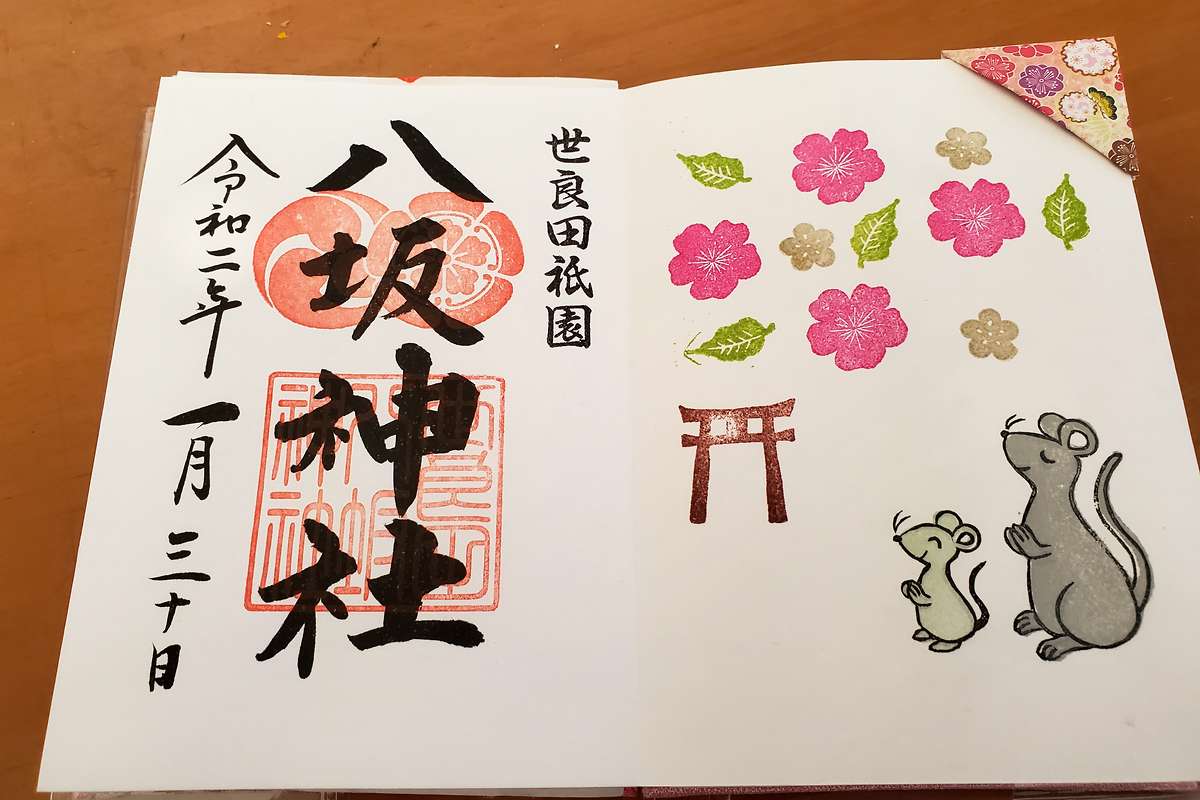 世良田祇園
八坂神社
令和二年一月三十日